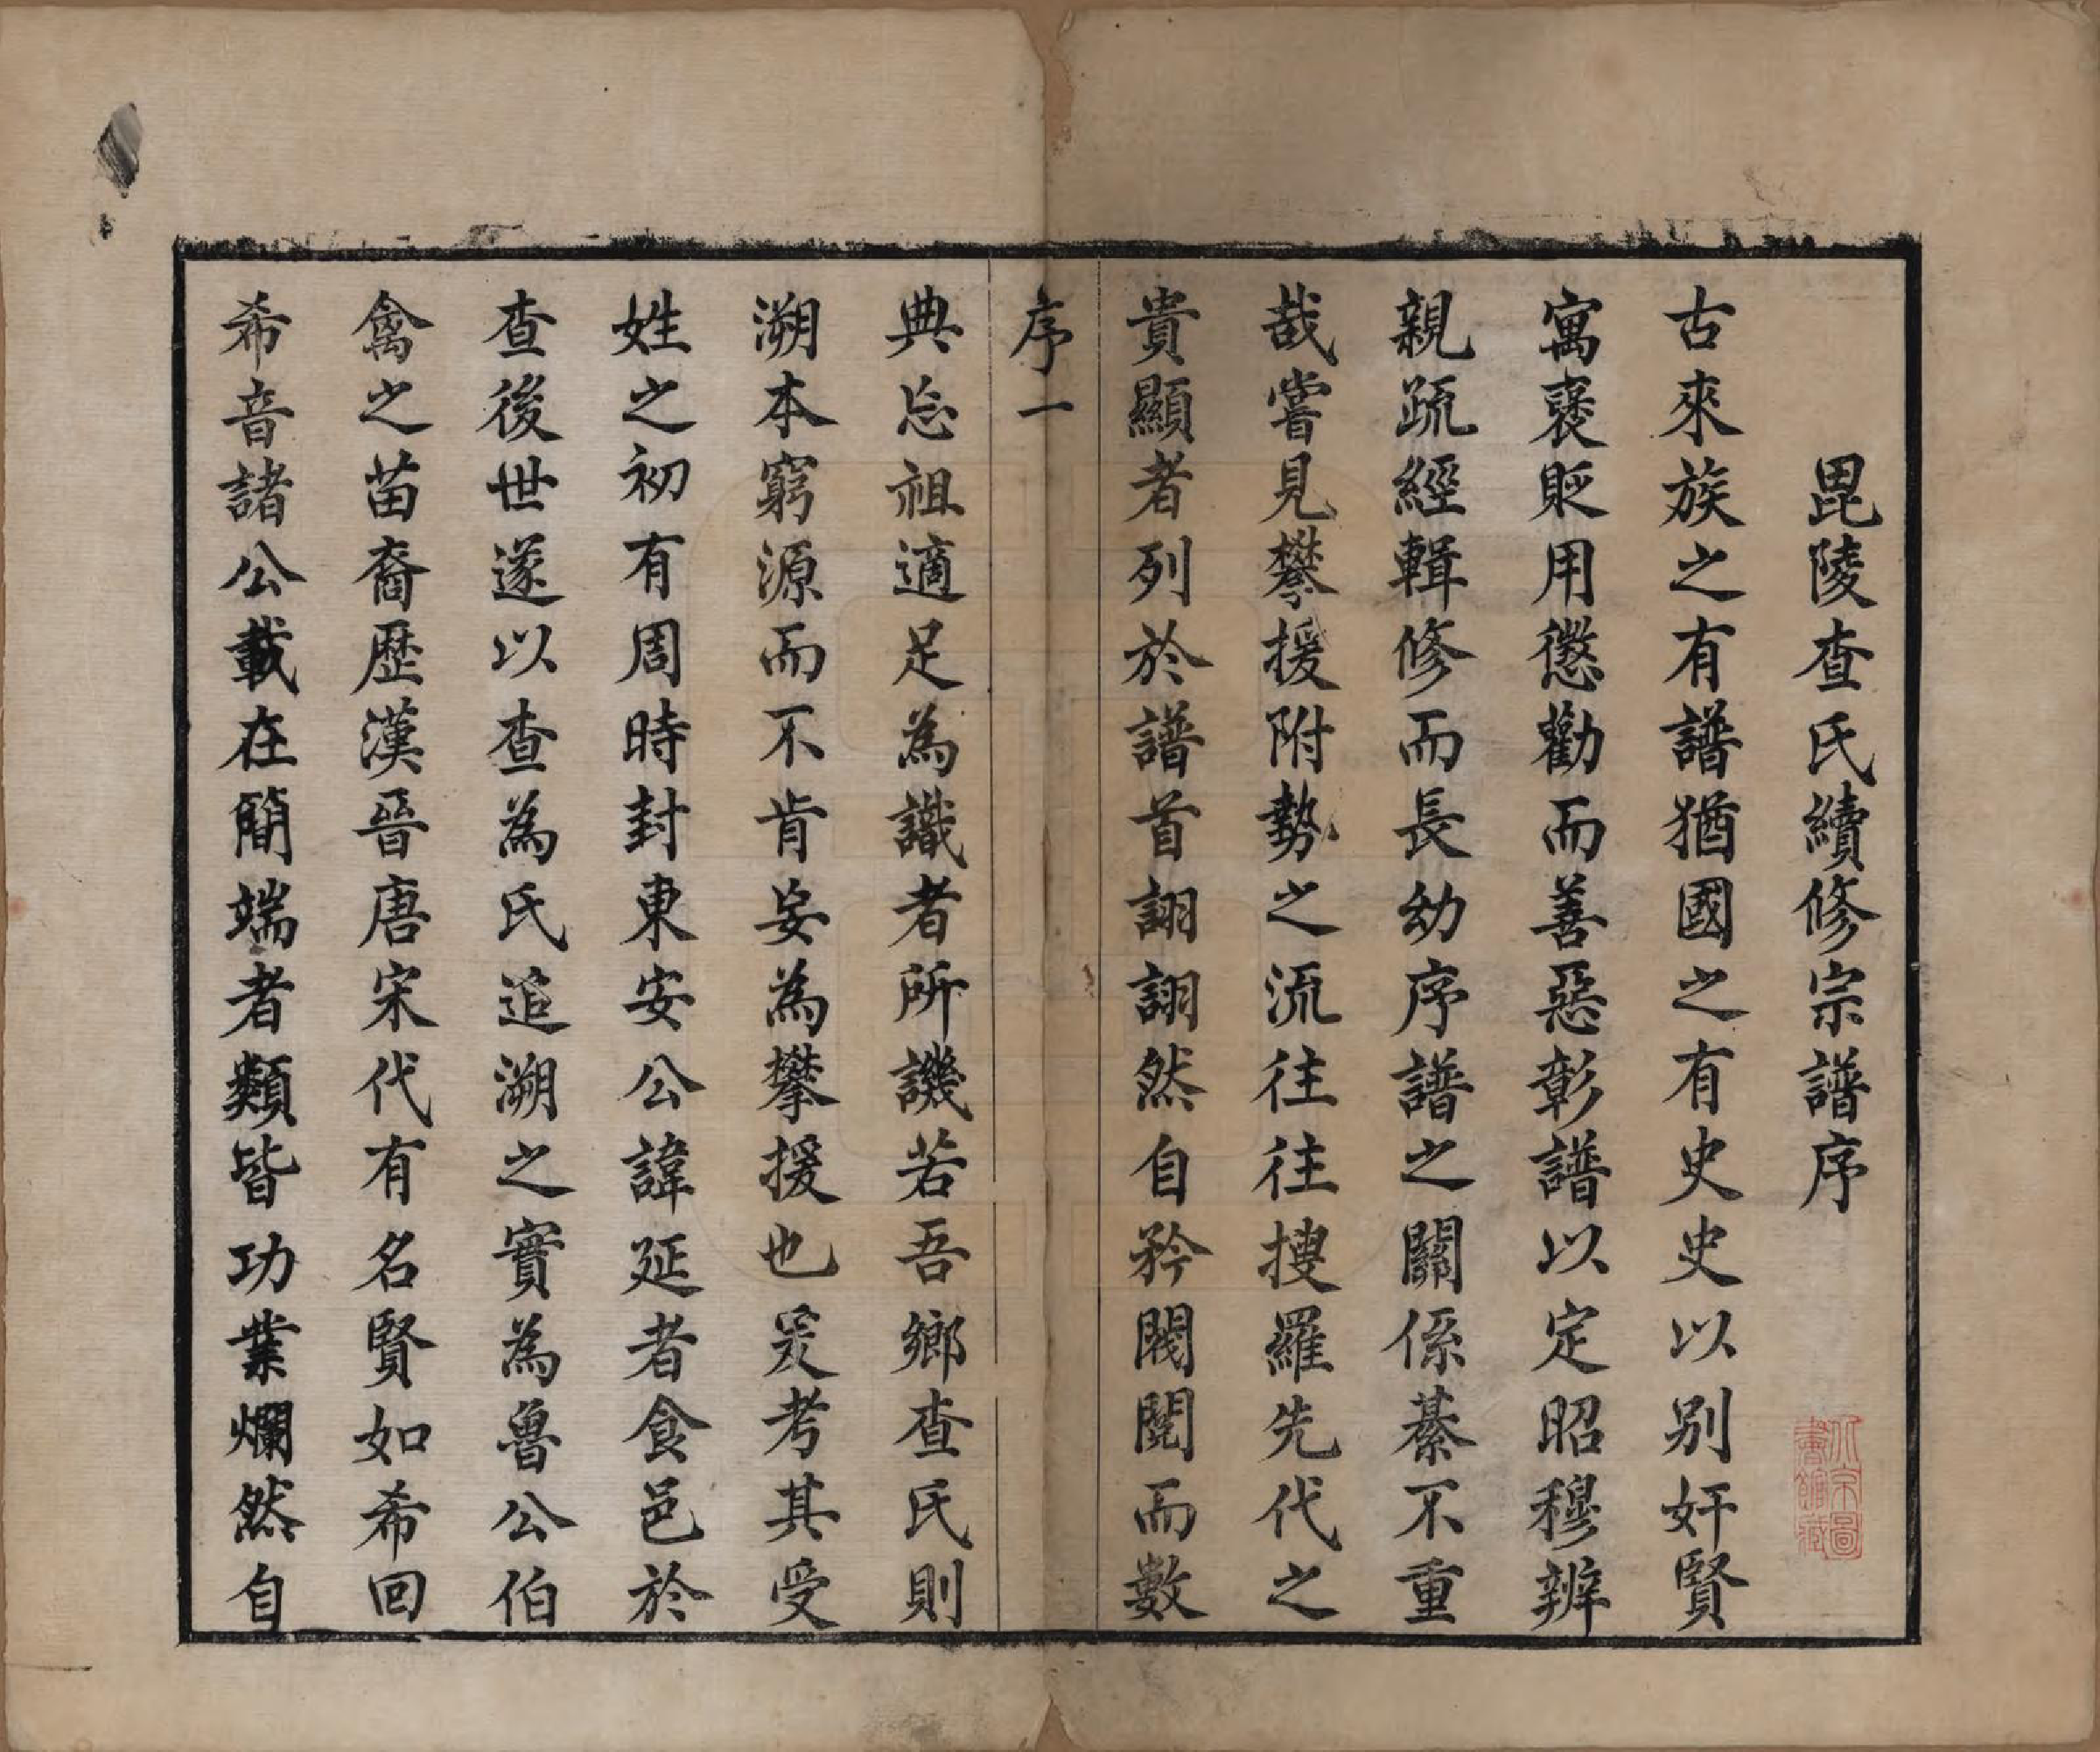 毘陵查氏續修宗譜序
古來族之有譜猶國之有史史以別奸賢
寓褒貶用懲勸而善惡彰譜以定昭穆辨
親疏經輯修而長幼序譜之關係綦不重
哉嘗見攀援附勢之流往往搜羅先代之
貴顯者列於譜首詡詡然自矜閥閱而數
序一
典忘祖適足為識者所譏若吾鄉查氏則
溯本窮源而不肯妄為攀援也爰考其受
姓之初有周時封東安公諱延者食邑於
查後世遂以查為氏追溯之實為魯公伯
禽之苗裔歷漢晉唐宋代有名賢如希回
希音諸公載在簡端者類皆功業爛然自